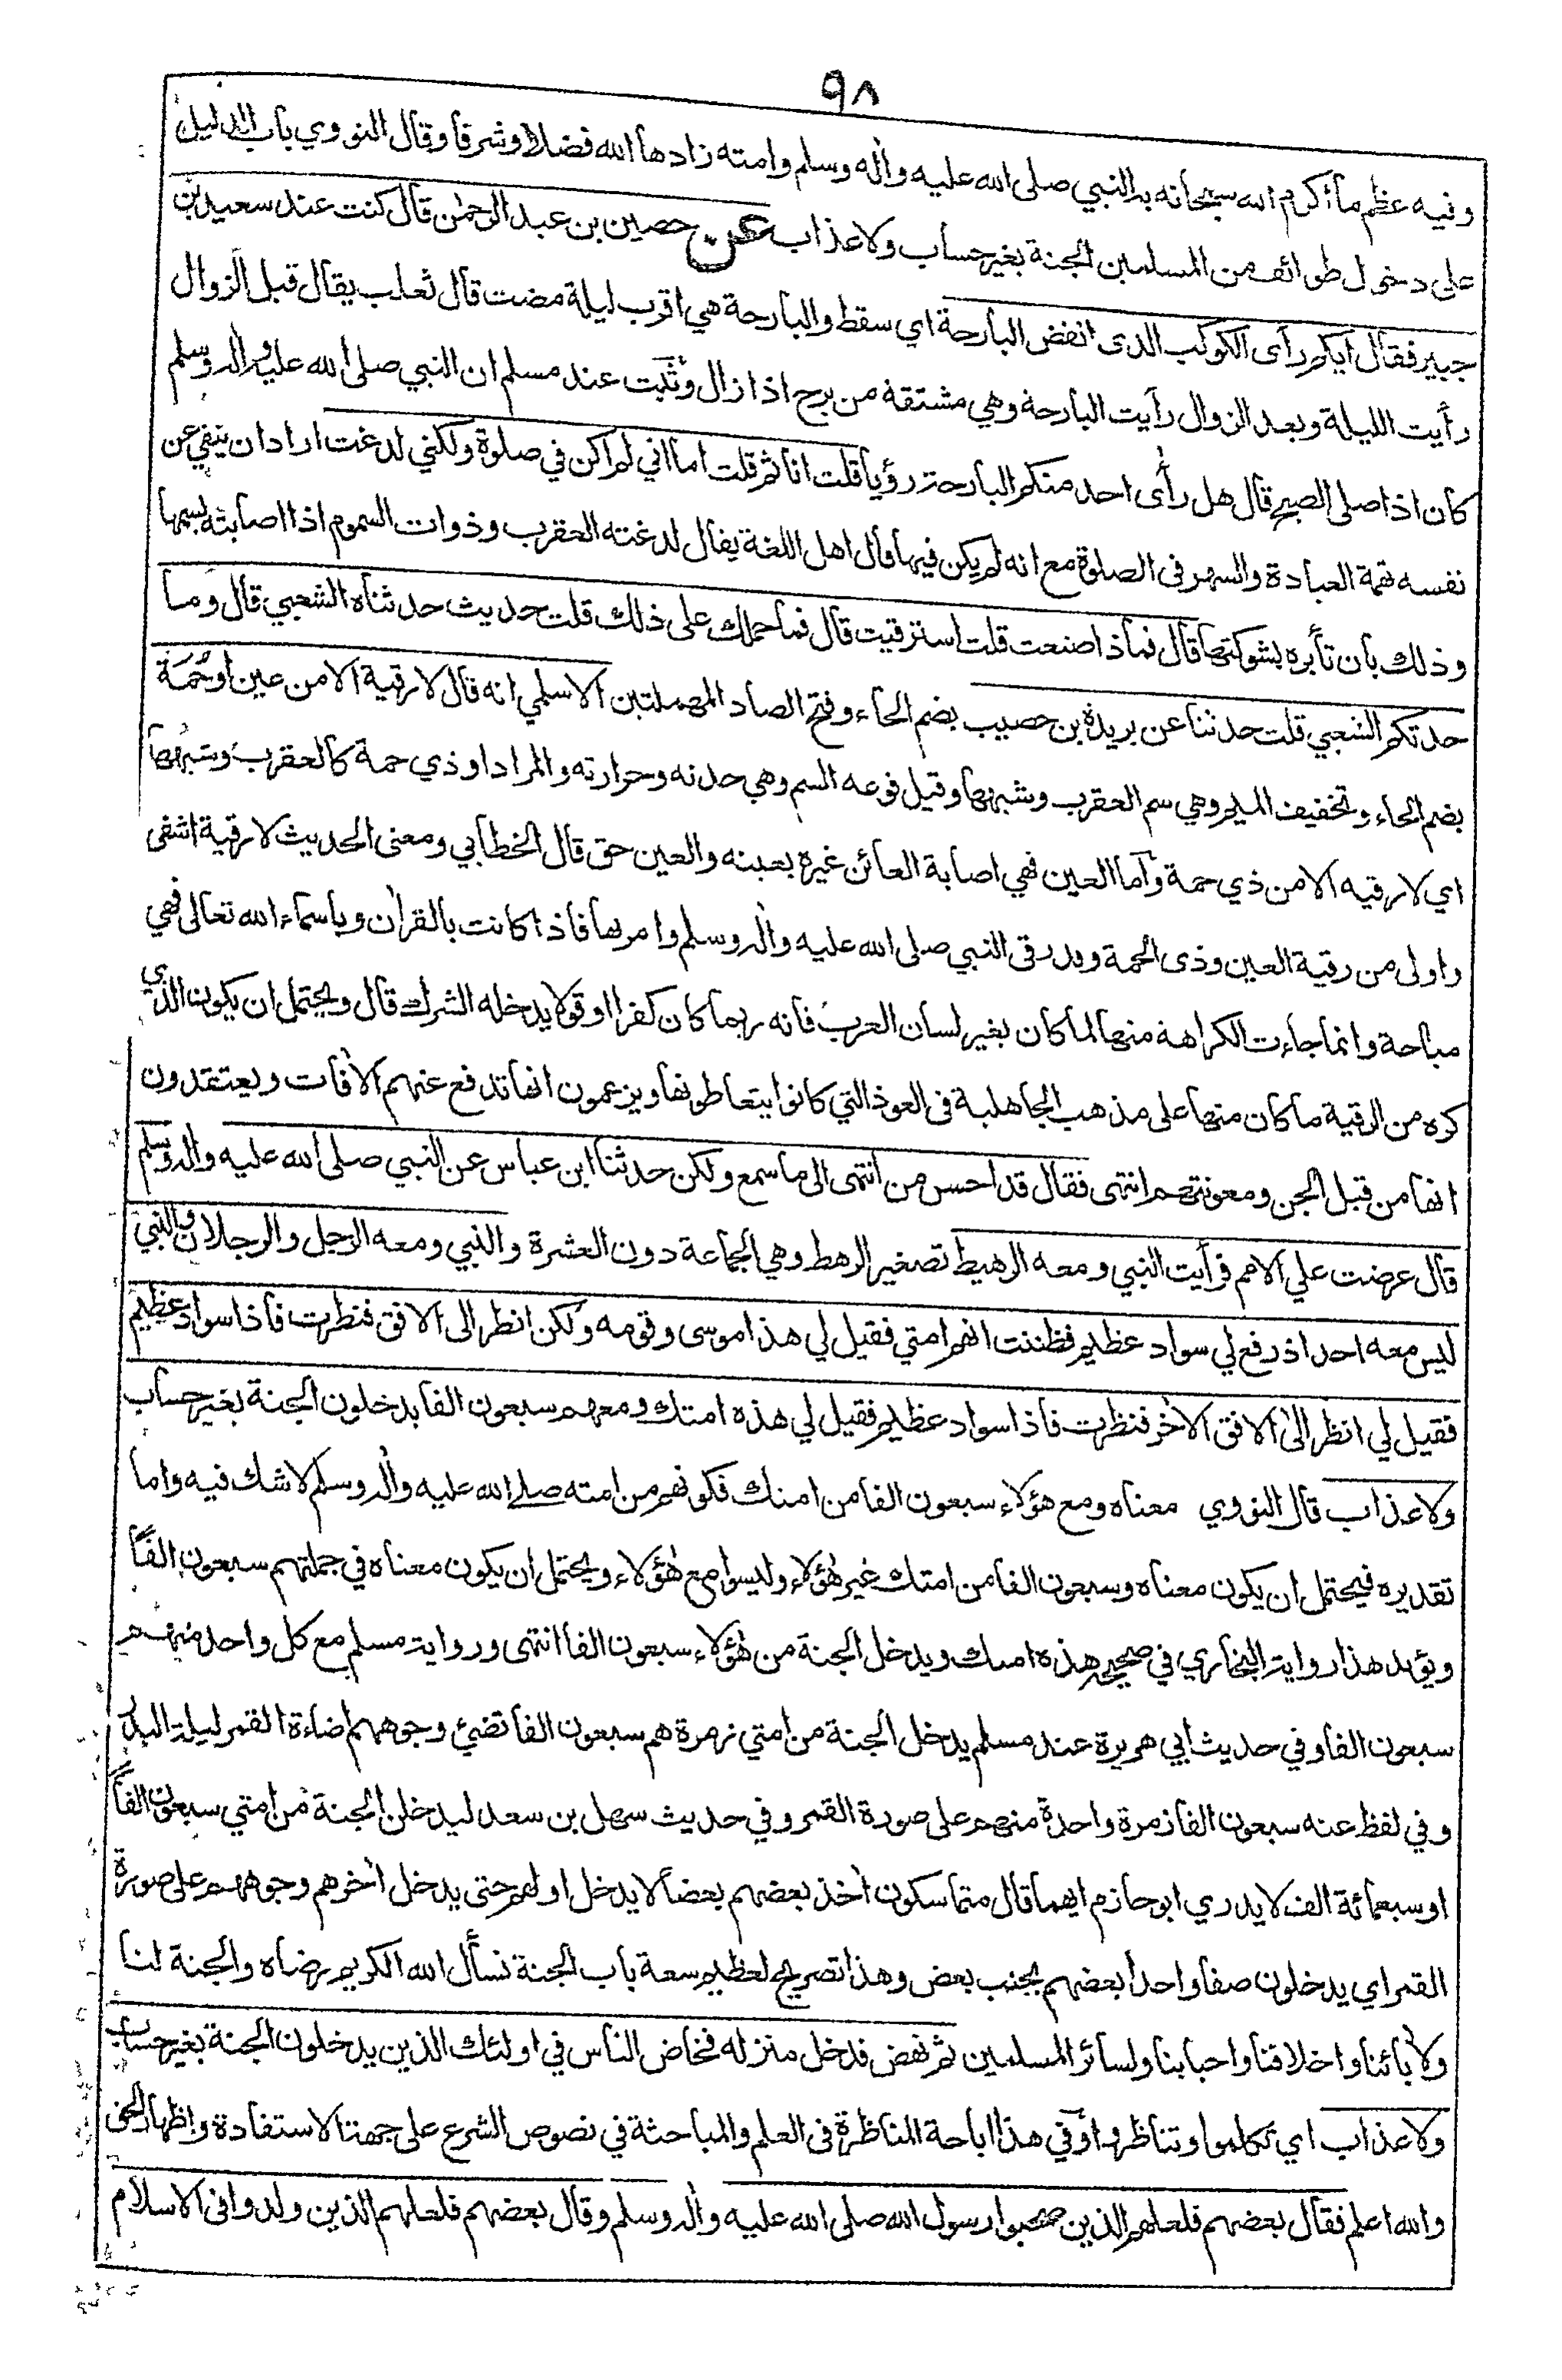 ٩٨
وفيه عظم ما أكرم الله سبحانه به النبي صلى الله عليه واٰله وسلم وامته زادها الله فضلا وشرفا وقال النووي باب الدليل
على دخول طوائف من المسلمين الجنة بغير حساب ولا عذاب عن حصين بن عبد الرحمٰن قال كنت عند سعيد بن
جبير فقال ايكم رأى الكوكب الذى انفض البارحة اي سقط والبارحة هي اقرب ليلة مضت قال ثعلب يقال قبل الزوال
رأيت الليلة وبعد الزوال رأيت البارحة وهي مشتقة من برح اذا زال وثبت عند مسلم ان النبي صلى الله عليه واٰله وسلم
كان اذا صلى الصبح قال هل رأى احد منكم البارحة رؤيا قلت انا ثم قلت اما اني لم اكن في صلوة ولكني لدغت اراد ان ينفي عن
نفسه تهمة العبادة والسهر فى الصلوة مع انه لم يكن فيها قال اهل اللغة يقال لدغته العقرب وذوات السموم اذا اصابته بسمها
وذلك بان تأبره بشوكتها قال فماذا صنعت قلت استرقيت قال فما حملك على ذلك قلت حديث حدثناه الشعبي قال وما
حدثكم الشعبي قلت حدثنا عن بريدة بن حصيب بضم الحاء وفتح الصاد المهملتين الاسلمي انه قال لا رقية الا من عين او حُمَة
بضم الحاء وتخفيف الميم وهي سم العقرب وشبهها وقيل فوعه السم وهي حدته وحرارته والمراد او ذي حمة كالعقرب وشبهها
اي لا رقيه الا من ذي حمة وأما العين فهي اصابة العائن غيره بعينه والعين حق قال الخطابي ومعنى الحديث لا رقية اشفى
واولى من رقية العين وذى الحمة وقد رقى النبي صلى الله عليه واٰله وسلم وامر بها فاذا كانت بالقراٰن وباسماء الله تعالى فهي
مباحة وانما جاءت الكراهة منها لما كان بغير لسان العرب فانه ربما كان كفرا او قولا يدخله الشرك قال ويحتمل ان يكون الذي
كره من الرقية ما كان منها على مذهب الجاهلية فى العوذ التي كانوا يتعاطونها ويزعمون انها تدفع عنهم الاٰفات ويعتقدون
انها من قبل الجن ومعونتهم انتهى فقال قد احسن من انتهى الى ما سمع ولكن حدثنا ابن عباس عن النبي صلى الله عليه واٰله وسلم
قال عرضت علي الامم فرأيت النبي ومعه الرهيط تصغير الرهط وهي الجماعة دون العشرة والنبي ومعه الرجل والرجلان والنبي
ليس معه احد اذ رفع لي سواد عظيم فظننت انهم امتي فقيل لي هذا موسى وقومه ولكن انظر الى الافق فنظرت فاذا سواد عظيم
فقيل لي انظر الى الافق الاٰخر فنظرت فاذا سواد عظيم فقيل لي هذه امتك ومعهم سبعون الفا يدخلون الجنة بغير حساب
ولا عذاب قال النووي معناه ومع هؤلاء سبعون الفا من امتك فكونهم من امته صلى الله عليه واٰله وسلم لا شك فيه واما
تقديره فيحتمل ان يكون معناه وسبعون الفا من امتك غير هٰؤلاء وليسوا مع هٰؤلاء ويحتمل ان يكون معناه في جملتهم سبعون الفًا
ويؤيد هذا رواية البخاري في صحيحه هذه امتك ويدخل الجنة من هٰؤلاء سبعون الفا انتهى ورواية مسلم مع كل واحد منهم
سبعون الفا وفي حديث ابي هريرة عند مسلم يدخل الجنة من امتي زمرة هم سبعون الفا تضئ وجوههم اضاءة القمر ليلة البدر
وفي لفظ عنه سبعون الفا زمرة واحدة منهم على صورة القمر وفي حديث سهل بن سعد ليدخلن الجنة من امتي سبعون الفًا
او سبعمائة الف لا يدري ابو حازم ايهما قال متماسكون اٰخذ بعضهم بعضا لا يدخل اولهم حتى يدخل اٰخرهم وجوههم على صورة
القمر اي يدخلون صفا واحدا بعضهم بجنب بعض وهذا تصريح لعظيم سعة باب الجنة نسأل الله الكريم رضاه والجنة لنا
ولاٰبائنا واخلافنا واحبابنا ولسائر المسلمين ثم نهض فدخل منزله فخاض الناس في اولئك الذين يدخلون الجنة بغير حساب
ولا عذاب اي تكلموا وتناظروا وفي هذا اباحة المناظرة فى العلم والمباحثة في نصوص الشرع على جهة الاستفادة واظهار الحق
والله اعلم فقال بعضهم فلعلهم الذين صحبوا رسول الله صلى الله عليه واٰله وسلم وقال بعضهم فلعلهم الذين ولدوا فى الاسلام